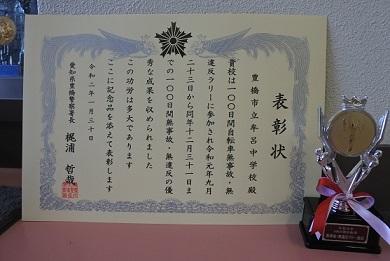 表彰状
豊橋市立牟呂中学校 殿
貴校は一〇〇日間自転車無事故・無
違反ラリーに参加され令和元年九月
二十三日から同年十二月三十一日ま
での一〇〇日間無事故・無違反の優
秀な成果を収められました
この功労は多大であります
ここに記念品を添えて表彰します
令和二年一月三十日
愛知県豊橋警察署長 梶浦 哲哉